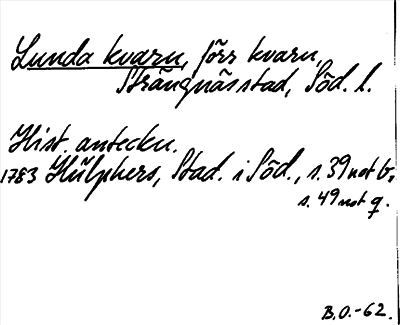 Lunda kvarn, förr kvarn,
Strängnäs stad, Söd. l.
Hist. anteckn.
1783 Hülphers, Stad. i Söd., s. 39 not b,
s. 49 not q.
B.O.-62.